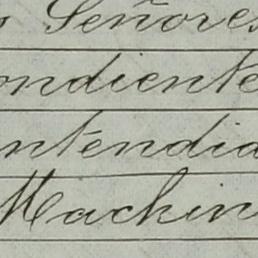 s Señores
ondiente
ntendid
Machin